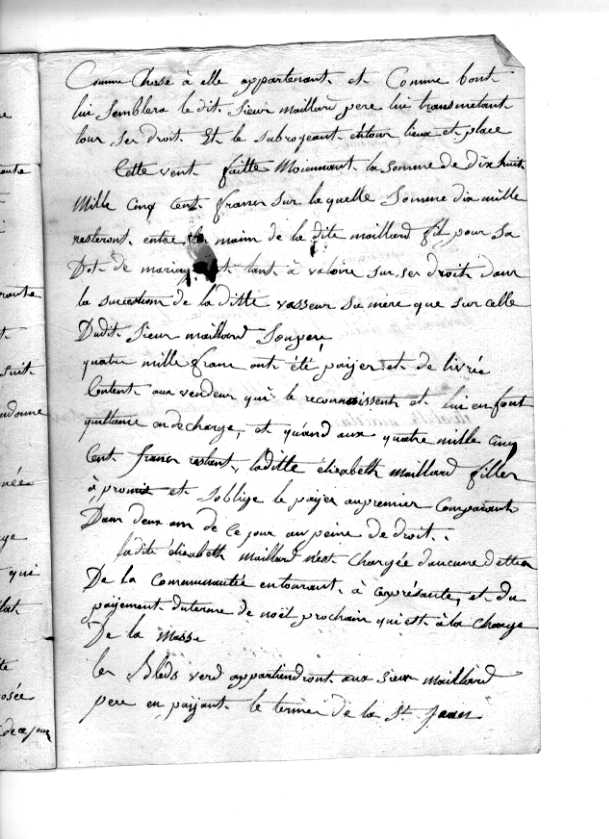 Comme Chose à elle appartenant et Comme bont
lui Semblera le dit Sieur maillard pere lui transmetant
tour Ser droit Et le Subrogeant entour lieux et place
Cette vent faitte Moiennant la Somme de dix huit
Mille Cinq Cent francs Sur la quelle Somme dix mille
resteront entre les main de la dite maillard fil pour Sa
Dot de mariage et tant à valoire Sur Ser droit dans
la Sucession de la ditte vasseur Sa mere que Sur celle
Dudit Sieur maillard Son pere,
quatre mille franc ont été payer et de livré
Content aux vendeur qui le reconnoissent et lui en font
quittance en decharge, et quand aux quatre mille cinq
Cent francs restant, laditte élizabeth maillard filler
à promit et Soblige le payer au premier Comparant
Dans deux ans de Ce jour au peine de droit.
ladite élizabeth maillard n'est Chargée d'aucune dettes
De la Communauté en tourant à Comprésente, et du
payement du terme de noël prochain qui est à la Charge
De la Masse
les Bleds verd appartiendront aux Sieur maillard
pere en payant le termes de la St. Jean
ne
t
Suit
ndonne
née
ge
qui
lat
te
osée
de ce jour